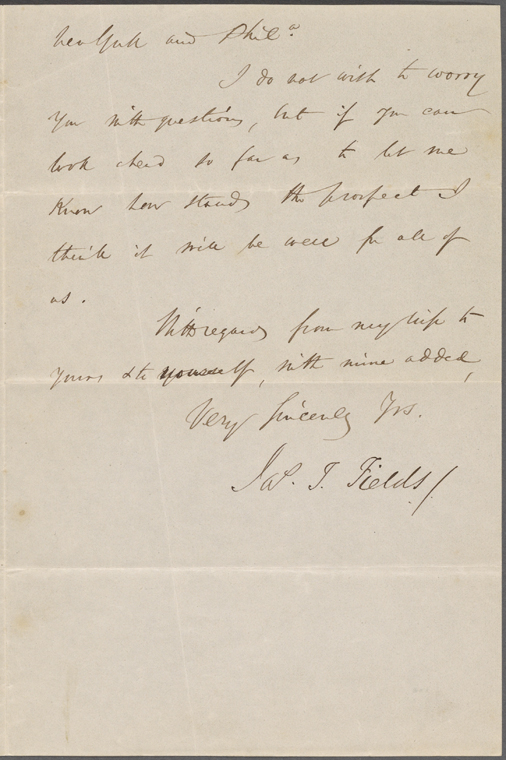 New York and Phil.ª
I do not wish to worry
you with questions, but if you can
look ahead so far as to let me
know how stands the prospect I
think it will be well for all of
us.
With regards from my wife to
yours & to yourself, with mine added,
Very Sincerely Yrs.
Jas. T. Fields/